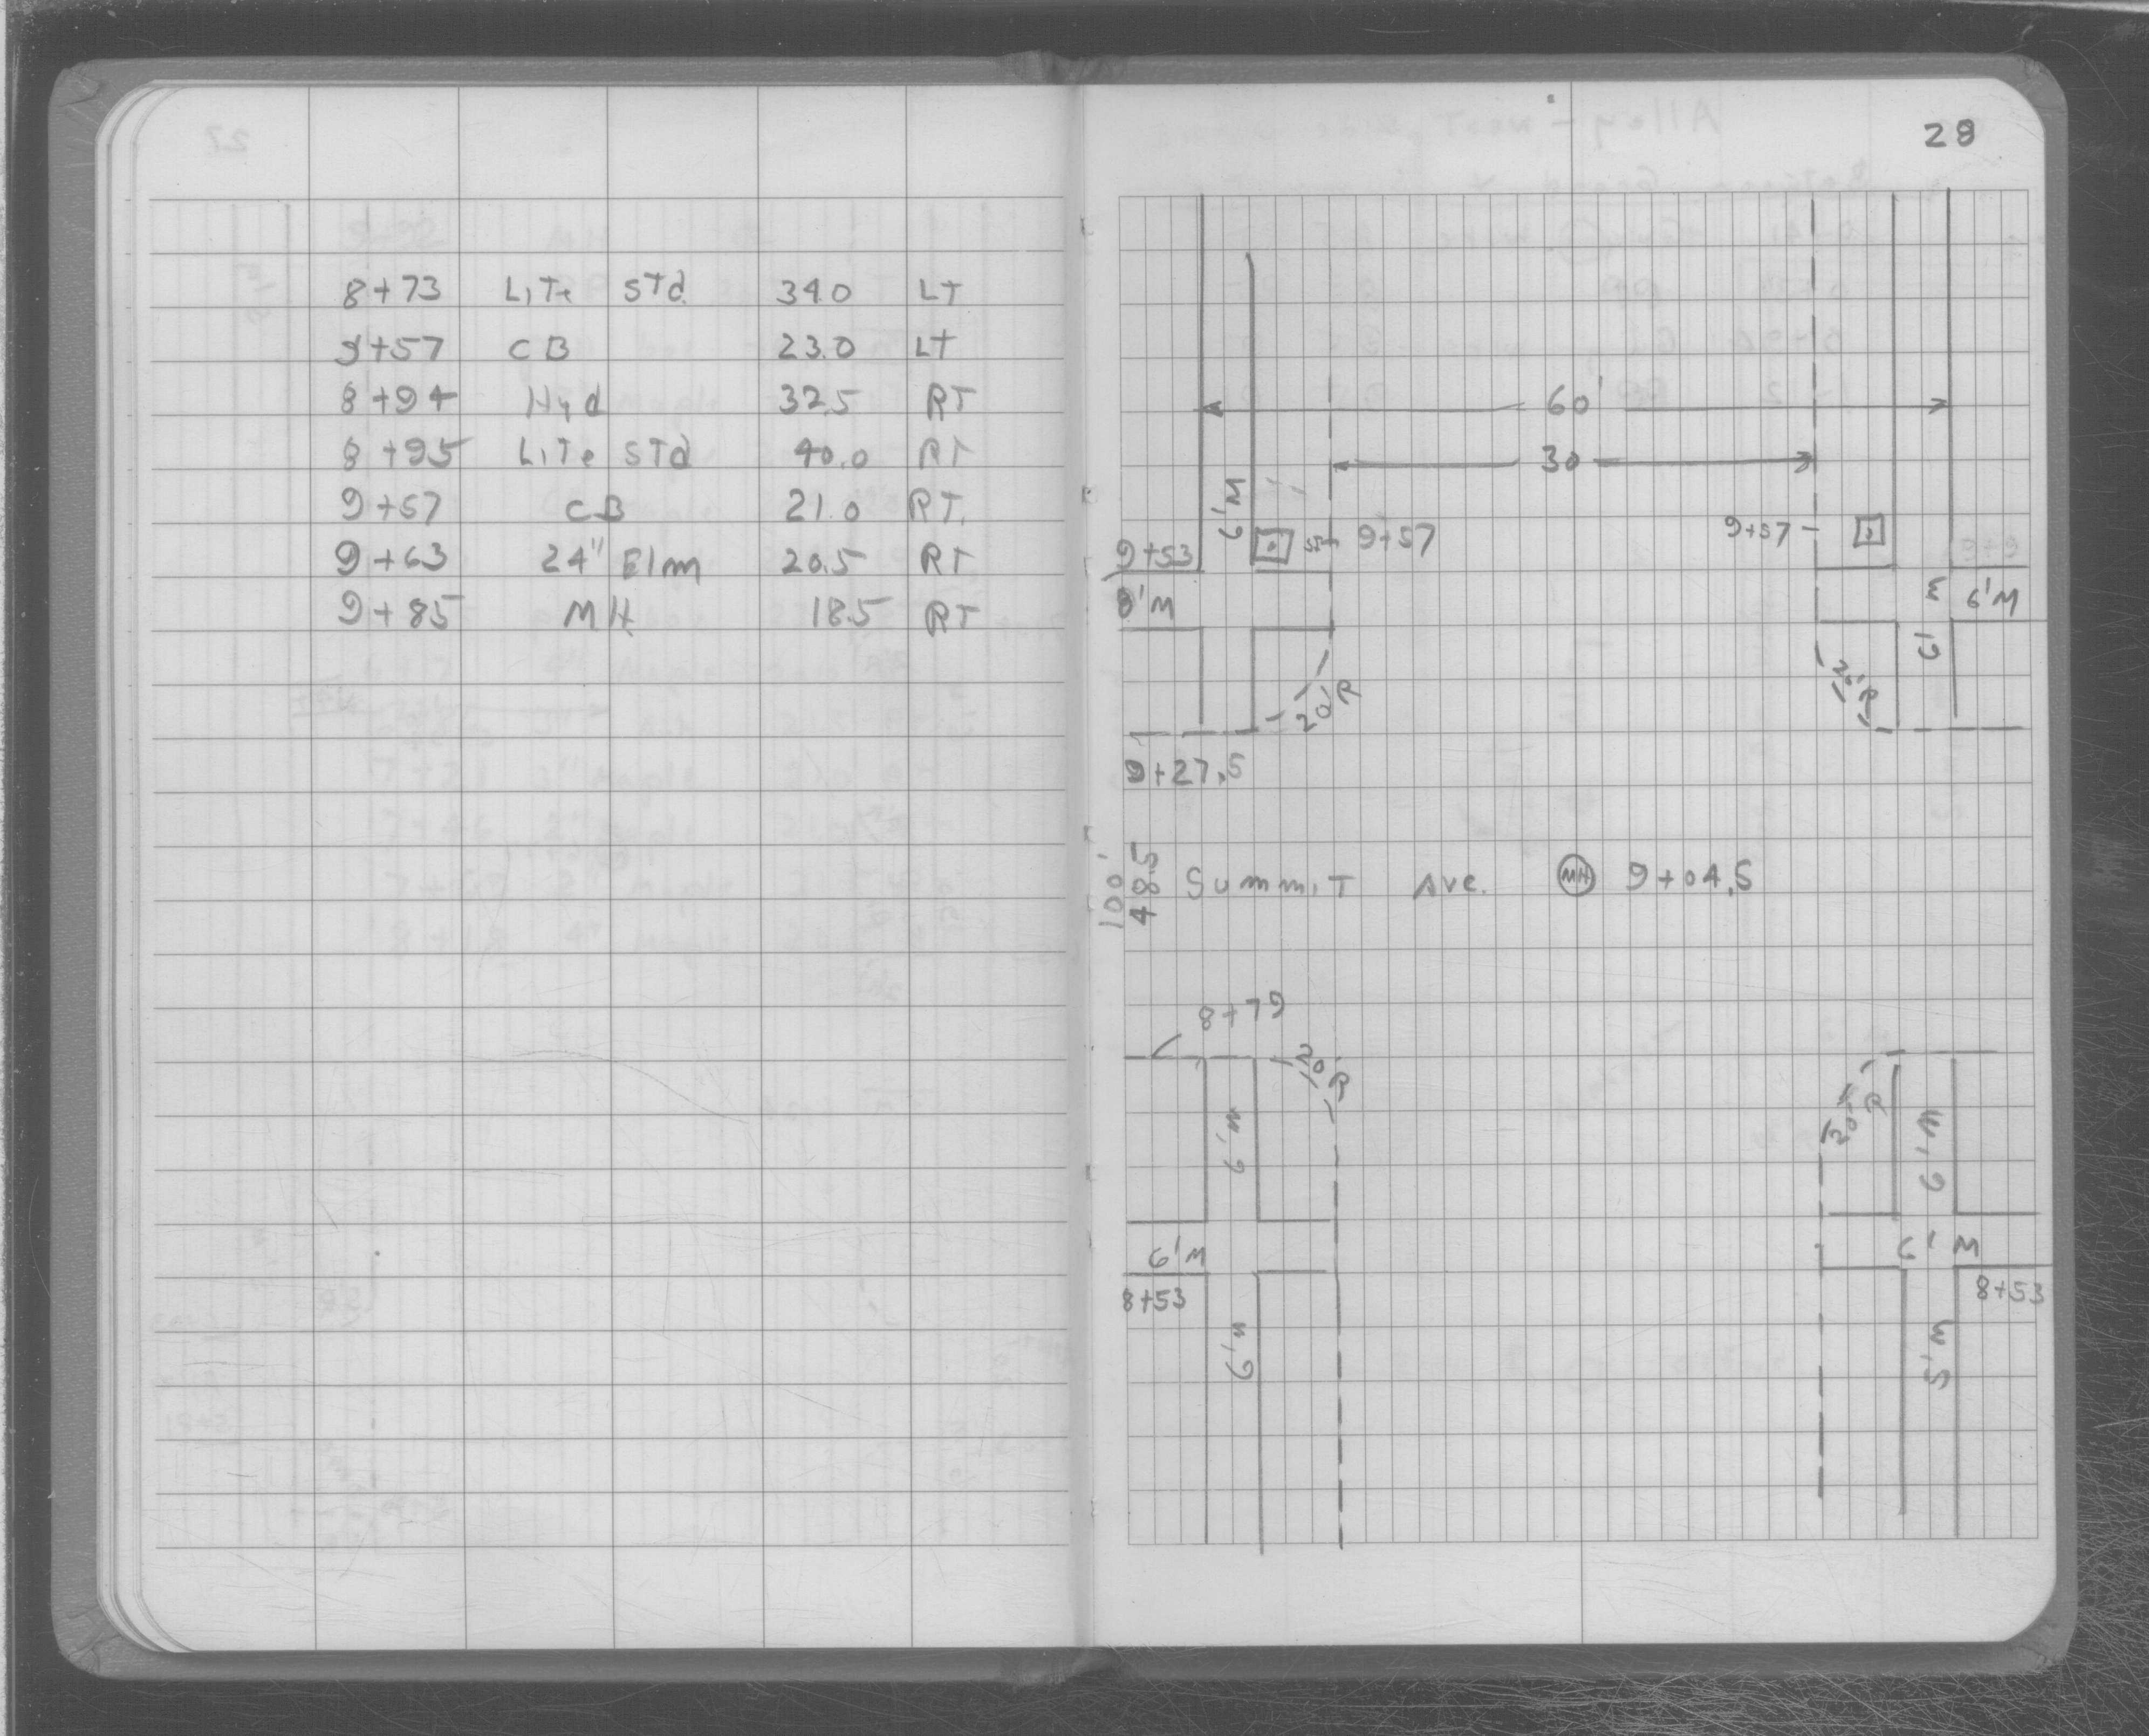 8+73 LiTe STd. 34.0 LT
9+57 CB 23.0 LT
8+94 Hyd 32.5 RT
8+95 LiTe STd 40.0 RT
9+57 CB 21.0 RT.
9+63 24" Elm 20.5 RT
9+85 MH 18.5 RT
28
60'
30
6'M
9+53
9+57
9+57
8'M
M 6'
6'M
20'R
20'R
9+27.5
100'
48.5
SummiT Ave. MH 9+04.5
8+79
20'R
20'R
6'M
6'M
6'M
6'M
8+53
8+53
6'M
5'M